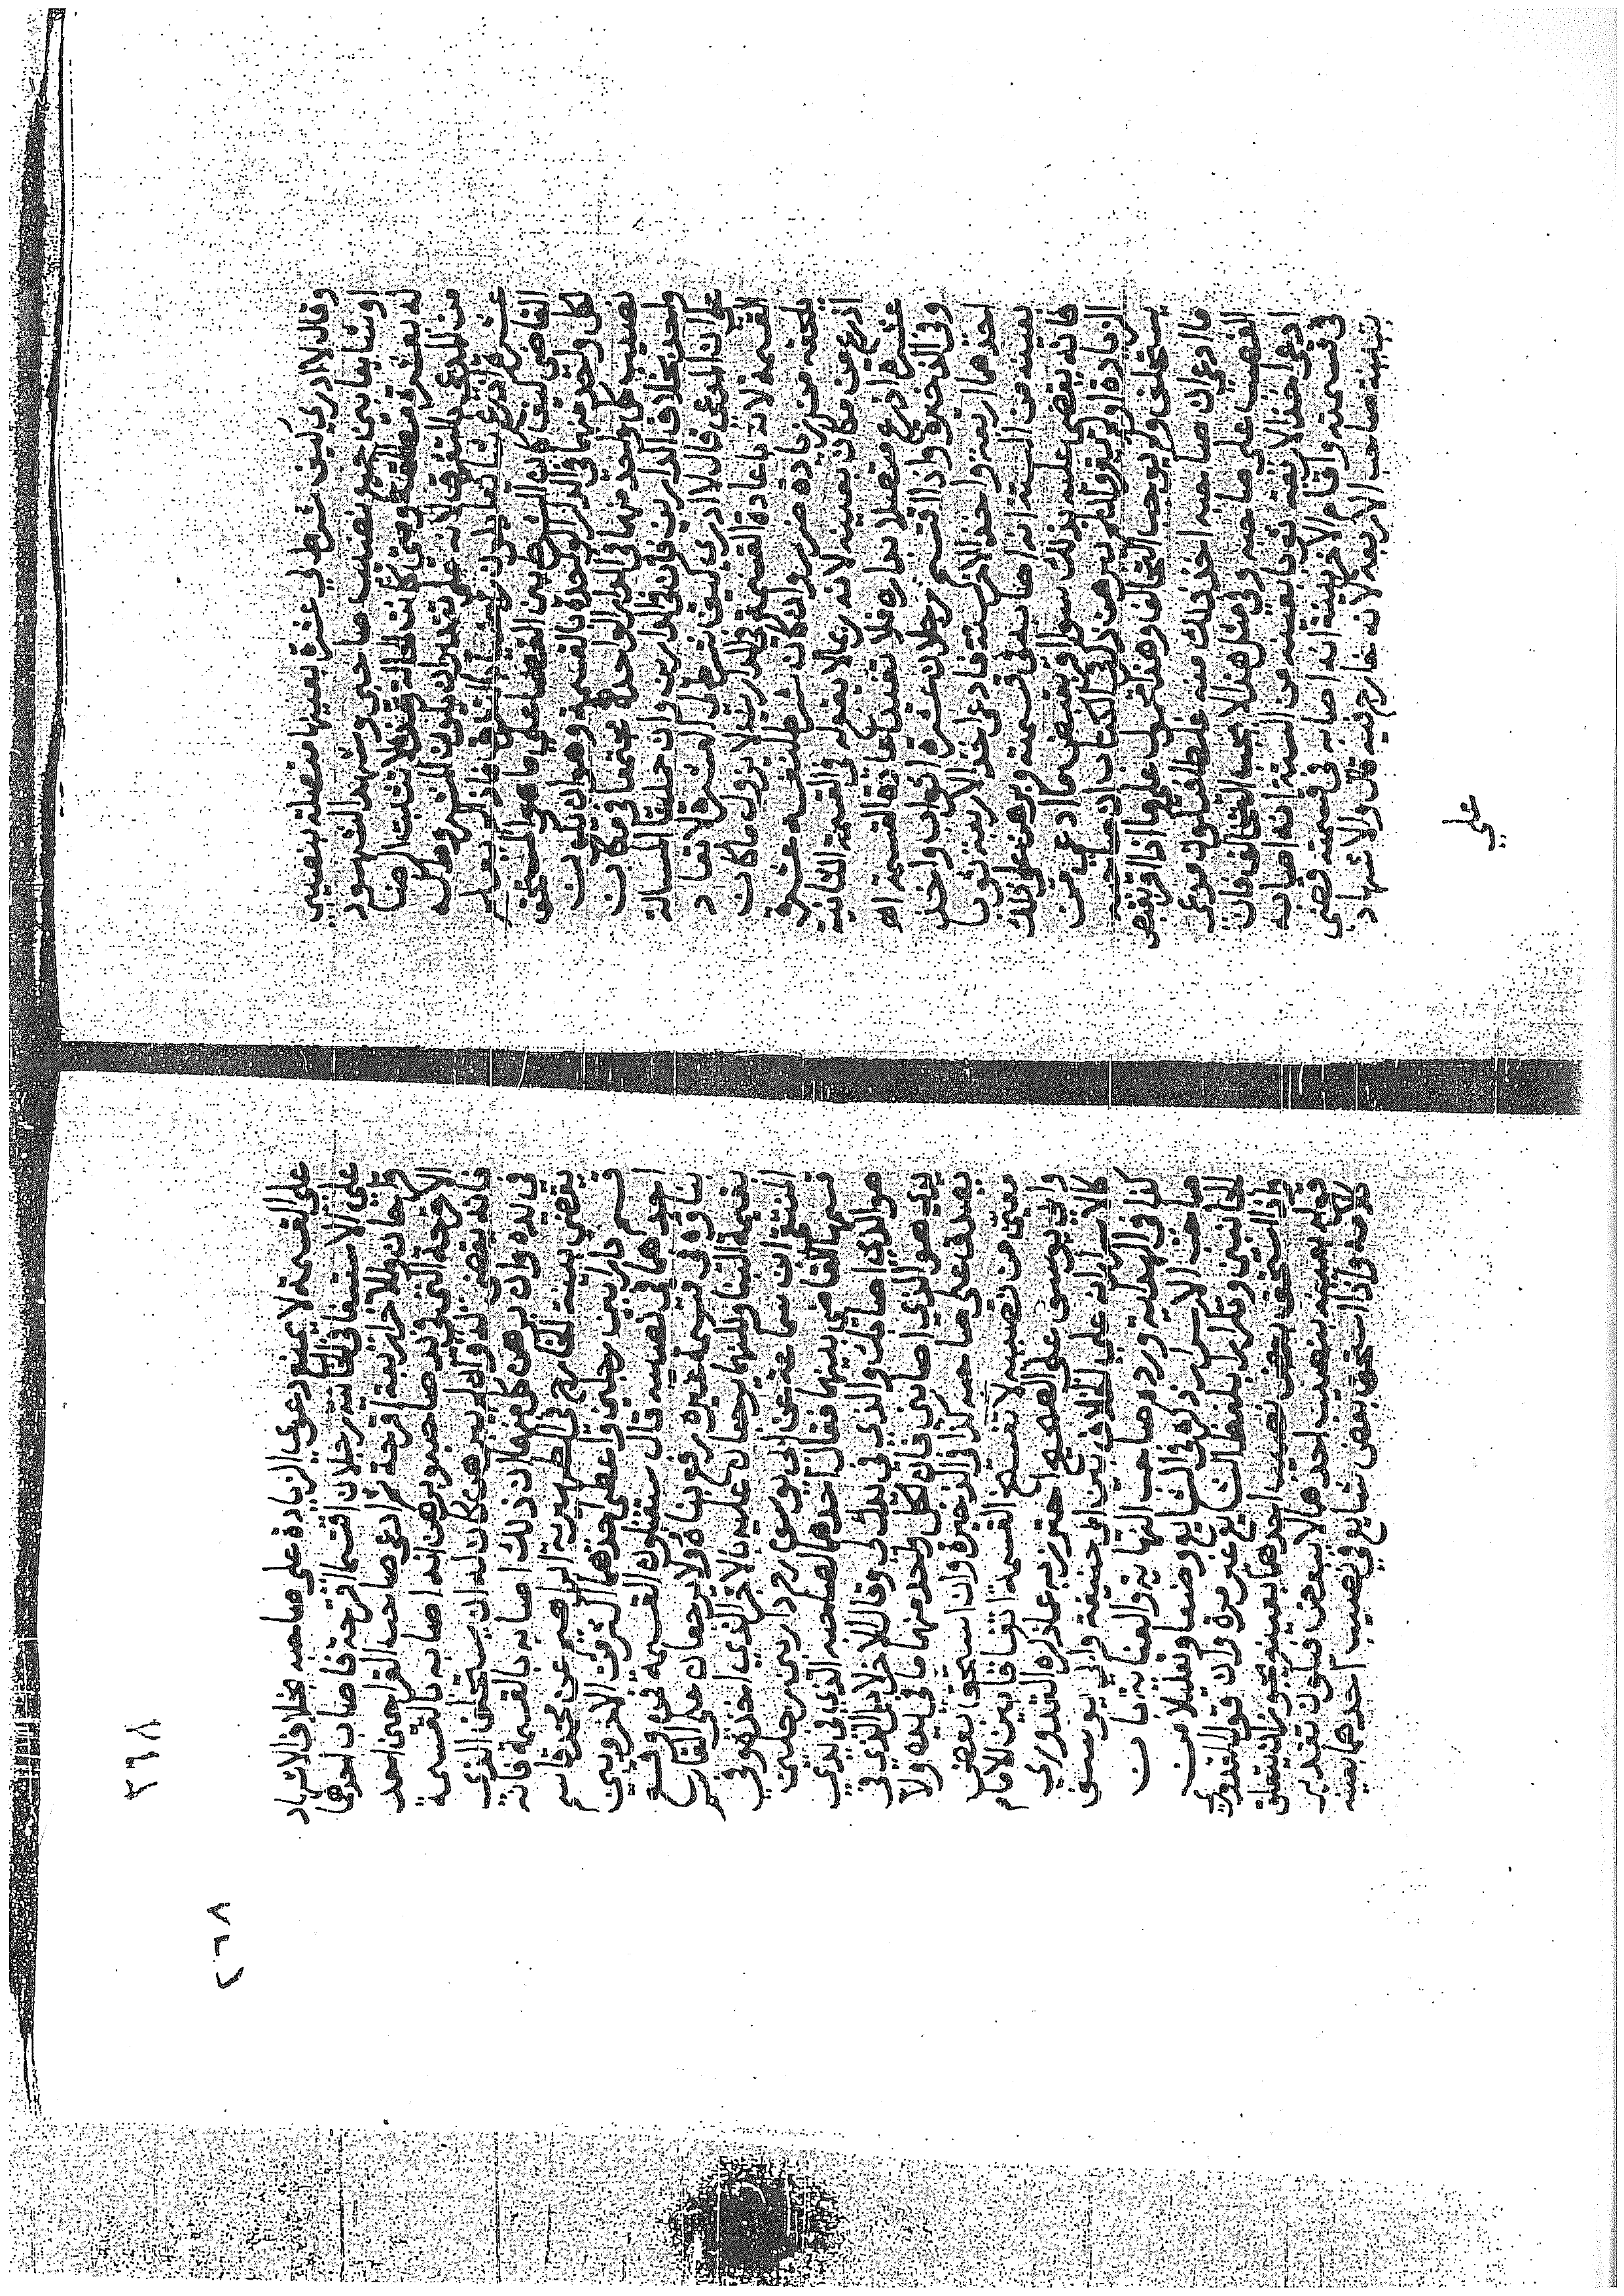 وقال لا ادري كيف شرط لي عشرة بعينها متصلة بنصيبي
او شايعا في جميع نصيب صاحبي وشهد الشهود
له بعشرة مطلقة ومتى كانت الحالة هذه لا تثبت الرضا
من المدعي بالتفرق لانه على تقدير ان يكون المشروط له
عشرة اذرع شايعا يكون
القاضي لبقا كان الشرط بين القضا على ما هو المستحق
لكل واحد منهما في الدار الواحدة بالقسمة وهو ان يكون
نصيب كل واحد منهما في الدار الواحدة مجتمعا في مكان
واحد بخلاف الدارين فان في الدارين وان جعلنا المسالة
على ان المدعي قال لا ادري كيف شرط لي العشرة لا تعاد
القسمة لانه باعادة القسمة في الدارين لا يزول ما كان
يلحقه من زيادة ضرر وان كان شرط لنفسه عشرة
اذرع من مكان بعينه لانه ربما لا تقع له في القسمة الثانية
عشرة اذرع متصلا بداره فلا تفيد اعادة القسمة اه
وفي الذخيرة واذا اقتسم رجلان عشرة اثواب واخذ
احدهما اربعة واخذ الاخر ستة فادعى احد الاربعة ثوبا
بعينه من الستة انه اصابه في قسمته وبرهن على ذلك
فانه يقضى عليه بذلك سوا اقر بقبض ما ادعي من
الزيادة او لم يقر وان لم يبرهن ذكر في الكتاب ان صاحبه
يستحلف ولم يوجب التحالف وهذا محمول على ما اذا اقر بقبض
ما ادعي ان صاحبه اخذ ذلك منه غلطا فيكون مدعي
الغصب على صاحبه وفي مثل هذا لا يجب التحالف فان
ادعى اخذ الاربعة ثوبا بعينه من الستة انه اصابه
في قسمته واقام الاخر بينة انه اصابه في قسمته قضى
ببينة صاحب الاربعة لانه خارج فيه قال والاشهاد
على
٢٦٨
٢٦٨
على القسمة لا يمنع دعوى الزيادة على صاحبه بخلاف الاشهاد
على الاستيفا وفي الخانية رجلان اقتسما اقرحة فاصاب احدهما
قراحان وللاخر اربعة اقرحة ثم ادعى صاحب القراحين احد
الاقرحة التي في يد صاحبه وبرهن انه اصابه بالقسمة
فانه يقضى له وان لم يبرهن كان له ان يستحلف الذي
في يده وان برهن كل منهما ان ذلك اصابه بالقسمة فانه
يقضى ببينة الخارج وفي الظهيرية ابراهيم عن محمد قاسم
قسم دارا بين رجلين واعطى احدهما اكثر من الاخر وبنى
احدهما في نصيبه قال يستقبلون القسمة فمن وقع
بناوه في قسمة غيره رفع بناه ولا يرجعان على القاسم
بقيمة البنا ولكنهما يرجعان عليه بالاجر الذي اخذه وفي
المنتقى ابن سماعة عن ابي يوسف رح دار بين رجلين
قسمها القاضي بينهما فقال احدهما لصاحبه الذي في يدي
هو الذي اصابك والذي في يدك لي وقال الاخر بل الذي في
يدي هو الذي اصابني فان لكل واحد منهما ما في يده ولا
يصدق على صاحبه كذا في الذخيرة وان استحق بعض
معين من نصيبه لا تفسخ القسمة اتفاقا بين الامام
وابي يوسف على الصحيح احترز به عما ذكره القدوري
كالاسرار انه على الخلاف بين ابي حنيفة وابي يوسف
كذا في الهداية ورده صاحب النهاية والعناية بان
صاحب الاسرار ذكره في الشايع وضعا وتعليلا من
الجانبين وتكرارا بلفظ الشايع غير مرة وان قول القدوري
واذا استحق بعض نصيب احدهما بعينه يجوز ان يتعلق
قوله بعينه بنصيب احدهما لا ببعض فيكون تقديره
واذا استحق بعض شايع في نصيب احدهما بعينه